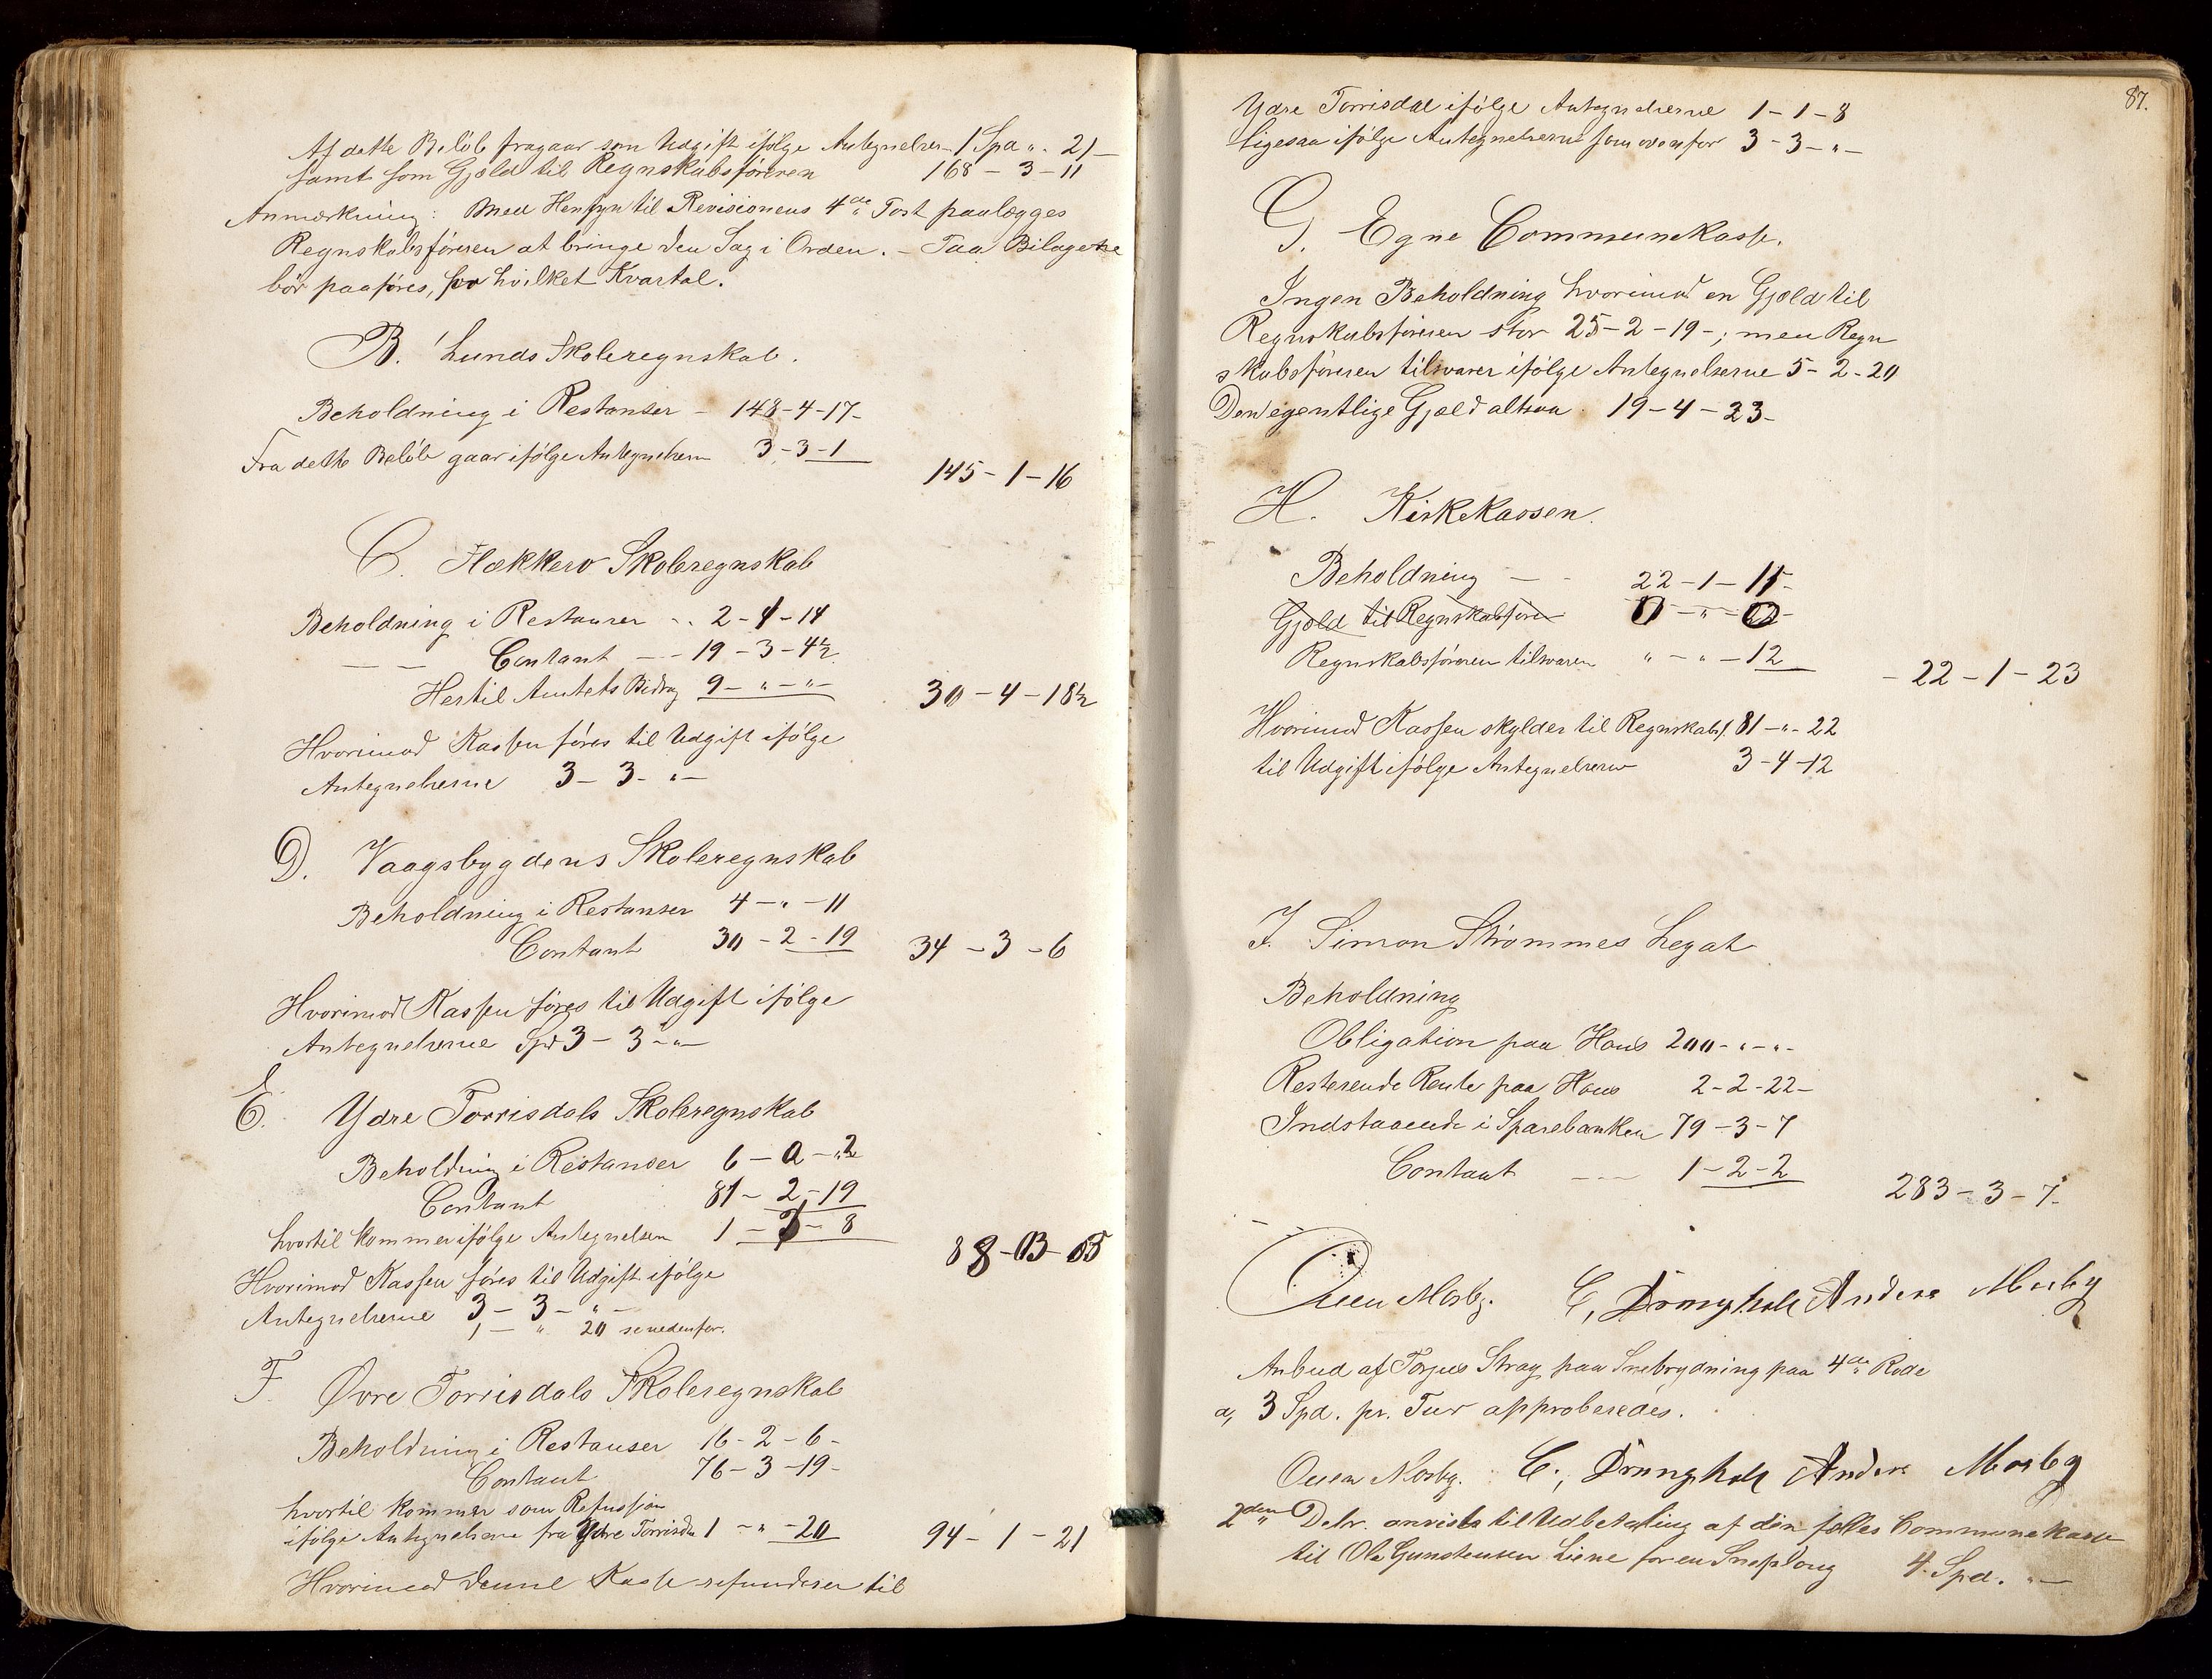 Af dette Beløb fragaar som Udgift ifølge Antegnelser 1 Spd " 21 –
samt som Gjæld til Regnskabsføreren 168 – 3 – 11
Anmærkning: Med Hensyn til Revisionens 4de Post paalægges
Regnskabsføreren at bringe den Sag i Orden. – Paa Bilagene
bør paaføres, for hvilket Kvartal.
B. Lunds Skoleregnskab.
Beholdning i Restanser – 148 – 4 – 17 –
Fra dette Beløb gaar ifølge Antegnelsen 3 – 3 – 1
145 – 1 – 16
C. Flekkerø Skoleregnskab
Beholdning i Restanser – 2 – 1 – 14
— — Contant — 19 – 3 – 4½
Hertil Amtets Bidrag 9 – " – " –
30 – 4 – 18½
Hvorimod Kassen føres til Udgift ifølge
Antegnelserne 3 – 3 – " –
D. Vaagsbygdens Skoleregnskab
Beholdning i Restanser 4 – " – 11
Contant 30 – 2 – 19 34 – 3 – 6
Hvorimod Kassen føres til Udgift ifølge
Antegnelserne Spd 3 – 3 – " –
E. Ydre Torrisdals Skoleregnskab
Beholdning i Restanser 6 – 0 – 2
Contant 81 – 2 – 19
hvortil kommer ifølge Antegnelsen 1 – – 8
88 – 3 –
Hvorimod Kassen føres til Udgift ifølge
Antegnelserne 3 – 3 – " –
1 – " 20 se nedenfor.
F. Øvre Torrisdals Skoleregnskab
Beholdning i Restanser 16 – 2 – 6 –
Contant 76 – 3 – 19 –
hvortil kommer som Refusjon
ifølge Antegnelserne fra Ydre Torrisdal 1 – " – 20 94 – 1 – 21
Hvorimod denne Kasse refunderer til
87.
Ydre Torrisdal ifølge Antegnelserne 1 – 1 – 8
Ligesaa ifølge Antegnelserne som ovenfor 3 – 3 – " –
G. Egne Communekasse.
Ingen Beholdning hvorimod en Gjæld til
Regnskabsføreren stor 25 – 2 – 19 – ; men Regn
skabsføreren tilsvarer ifølge Antegnelserne 5 – 2 – 20
Den egentlige Gjæld altsaa 19 – 4 – 23 –
H. Kirkekassen.
Beholdning — – 22 – 1 – 11 –
Gjæld til Regnskabsfører
Regnskabsføreren tilsvarer " – " – 12
– 22 – 1 – 23
Hvorimod Kassen skylder til Regnskabsf. 81 – " – 22
til Udgift ifølge Antegnelserne 3 – 4 – 12
I. Simon Strømmes Legat
Beholdning
Obligation paa Haus 200 – " – " –
Resterende Rente paa Haus 2 – 2 – 22 –
Indstaaende i Sparebanken 79 – 3 – 7
Contant — 1 – 2 – 2
283 – 3 – 7 –
Ouen Mosby. C, Drangsholt Anders Mosby
Anbud af Torjus Stray paa Snebrydning paa 4de Rode
a, 3 Spd. pr. Tur approberedes.
Ouen Mosby. C., Drangsholt Anders Mosby
2den Debr. anvistes til Udbetaling af den fælles Communekasse
til Ole Gunstensen Liene for en Sneploug 4 Spd. " –